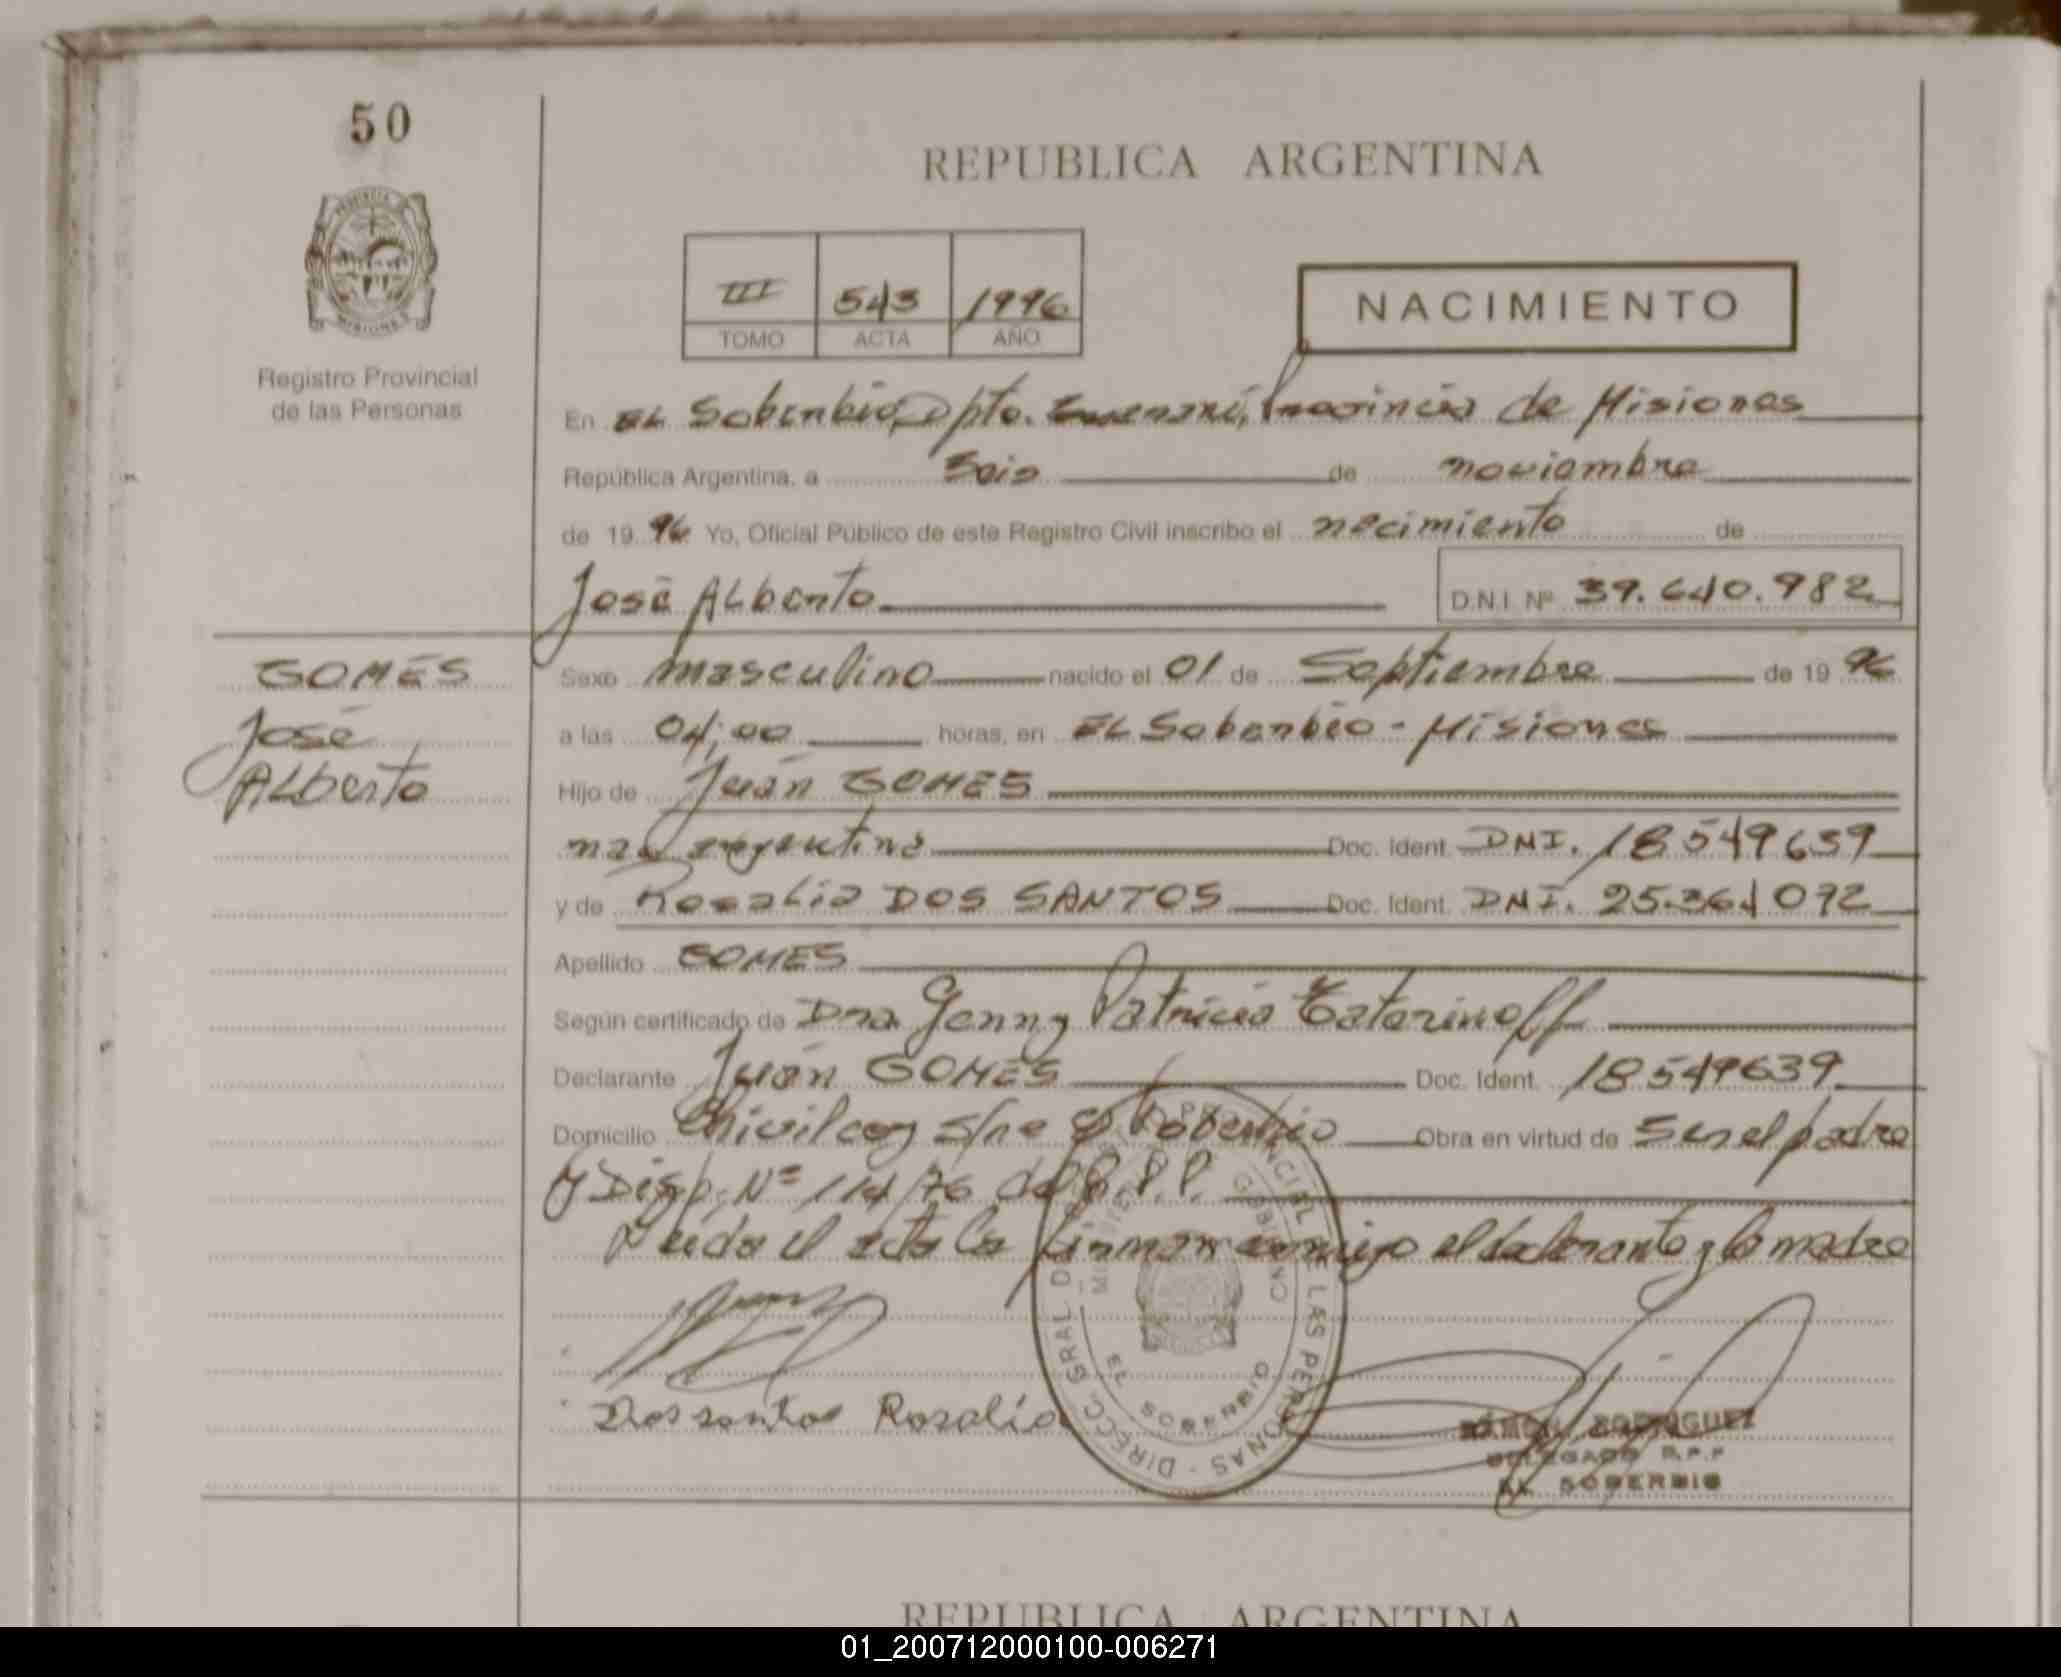 50
REPUBLICA ARGENTINA
III 543 1996
TOMO ACTA AÑO
NACIMIENTO
Registro Provincial
de las Personas
En EL Soberbio, Dpto. Guaraní, Provincia de Misiones
República Argentina, a Seis de noviembre
de 1996 Yo, Oficial Público de este Registro Civil inscribo el nacimiento de
José Alberto D.N.I. Nº 39.640.982
GOMES
José
Alberto
Sexo masculino nacido el 01 de Septiembre de 1996
a las 04;00 horas, en EL Soberbio - Misiones
Hijo de Juan GOMES
nac argentina Doc. Ident. DNI. 18549639
y de Rosalia DOS SANTOS Doc. Ident. DNI. 25.361072
Apellido GOMES
Según certificado de Dra. Jenny Patricia
Declarante Juan GOMES Doc. Ident. 18549639
Domicilio Chivilcoy s/nº El Soberbio Obra en virtud de Ser el padre
y Disp. Nº 114/76 del R.P.P.
Leída el acta la firman conmigo el declarante y la madre
DIRECC. GRAL DE PROVINCIAL DE LAS PERSONAS
GOBIERNO
EL SOBERBIO
Dos santos Rosalia
RAMON RODRIGUEZ
DELEGADO R.P.P
EL SOBERBIO
REPUBLICA ARGENTINA
01_200712000100-006271